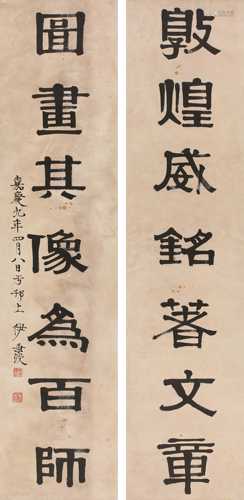 敦煌威銘著文章
圖畫其像為百師
嘉慶九年四月八日書於邗上 伊秉綬